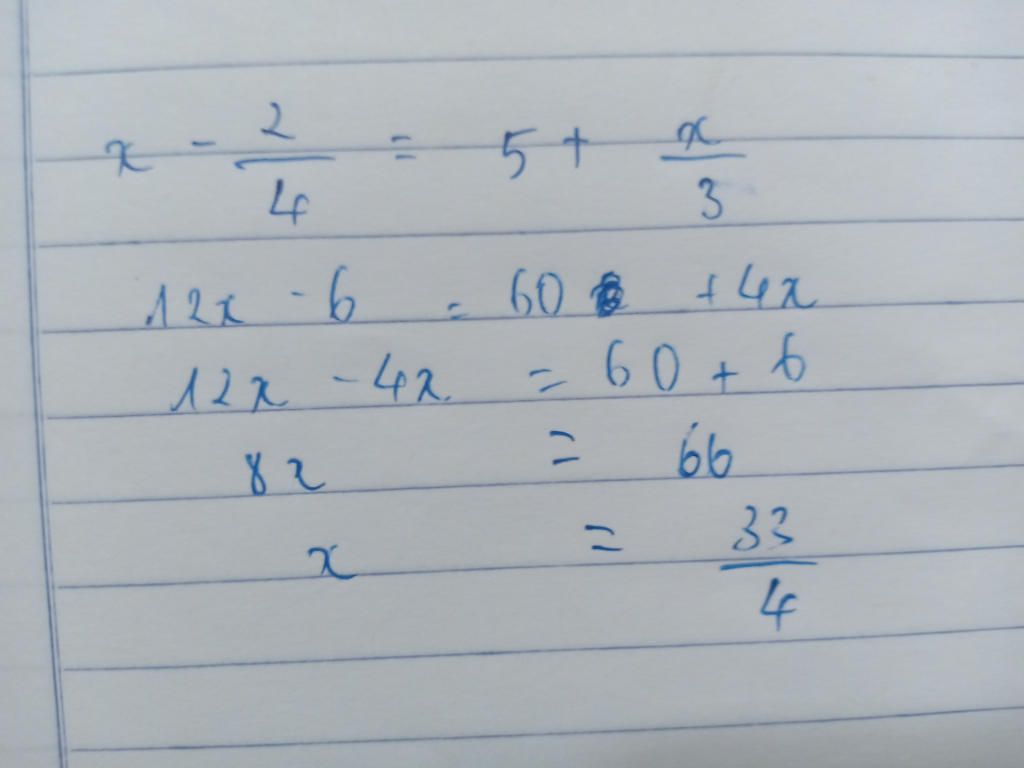 x - 2/4 = 5 + x/3
12x - 6 = 60 + 4x
12x - 4x = 60 + 6
8x = 66
x = 33/4